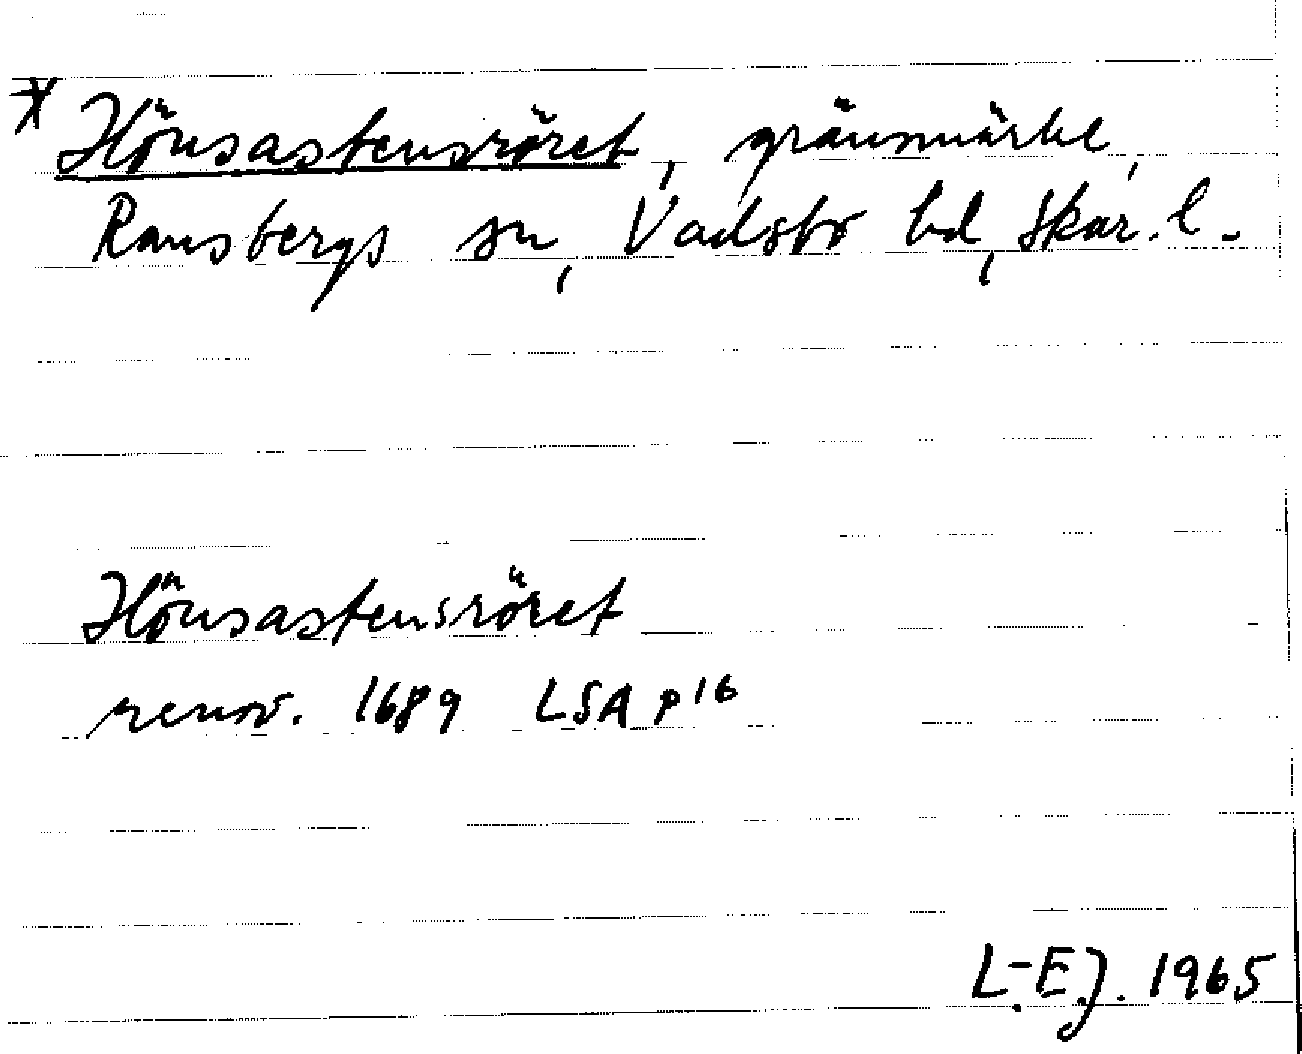 * Hönsastensröret, gränsmärke,
Ransbergs sn, Vadsbo hd, Skar. l.
Hönsastensröret
renov. 1689 LSA P16
L.-E.J. 1965